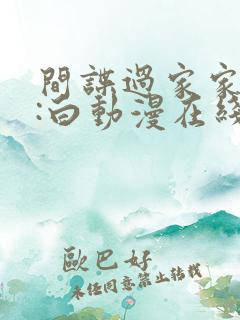 間諜過家家
:白動漫在綫
歐巴好
未經同意禁止轉載